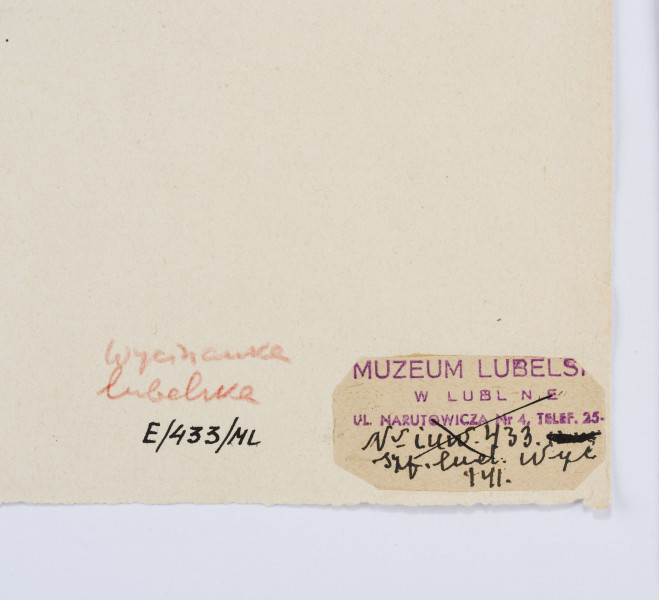 Wycinanka
lubelska
E/433/ML
MUZEUM LUBELS
W LUBL NE
UL. NARUTOWICZA Nr 4, TELEF. 25-
433.